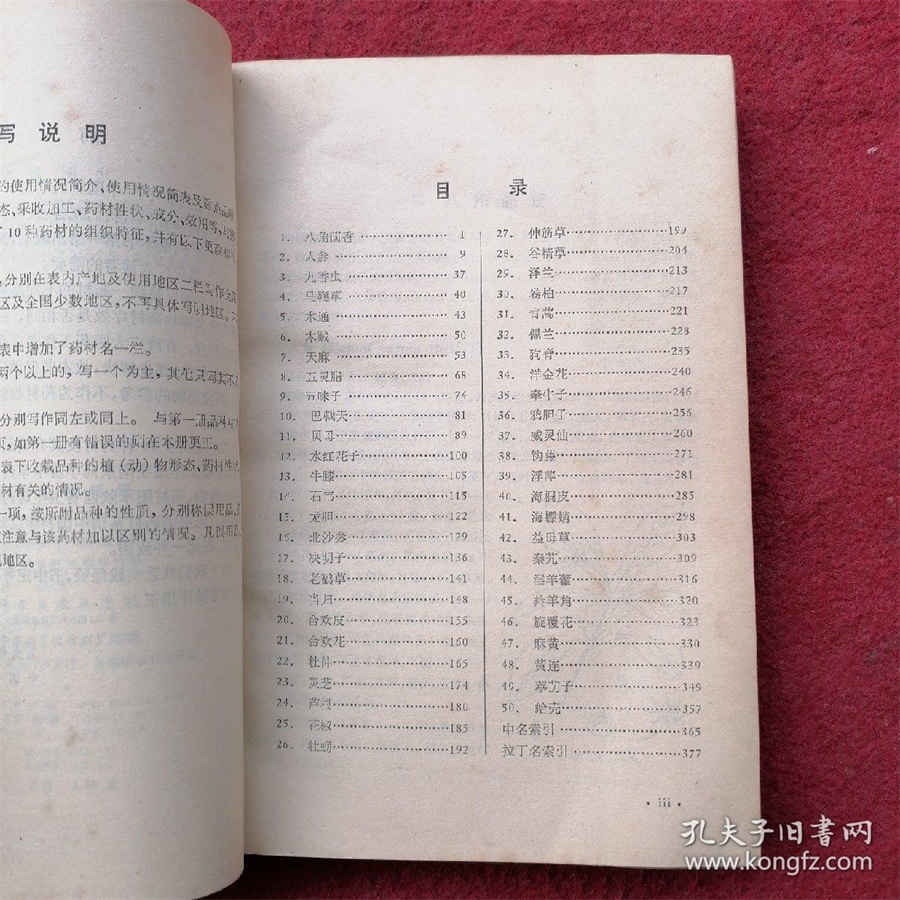 写说明
的使用情况简介、使用情况简表及
态、采收加工、药材性状、成分、效用等
10种药材的组织特征，并有以下
分别在表内产地及使用地区二栏
区及全国少数地区，不再具体写
表中增加了药材名一栏。
两个以上的，写一个为主，其他
分别写作同左或同上。 与第一册品种
页，如第一册有错误的则在本册更正。
表下收载品种的植（动）物形态、药材性
材有关的情况。
一项，按所附品种的性质，分别称
注意与该药材加以区别的情况。
地区。
目录
1. 八角茴香 1
2. 人参 9
3. 九香虫 37
4. 马鞭草 40
5. 木通 43
6. 木贼 50
7. 天麻 53
8. 五灵脂 68
9. 五味子 74
10. 巴戟天 81
11. 贝母 89
12. 水红花子 100
13. 牛膝 105
14. 石韦 115
15. 龙胆 122
16. 北沙参 129
17. 决明子 136
18. 老鹳草 141
19. 当归 148
20. 合欢皮 155
21. 合欢花 160
22. 杜仲 165
23. 灵芝 174
24. 芦根 180
25. 花椒 185
26. 牡蛎 192
27. 伸筋草 199
28. 谷精草 204
29. 泽兰 213
30. 卷柏 217
31. 青蒿 221
32. 佩兰 228
33. 狗脊 235
34. 洋金花 240
35. 牵牛子 246
36. 鸦胆子 256
37. 威灵仙 260
38. 钩藤 271
39. 浮萍 281
40. 海桐皮 285
41. 海螵蛸 298
42. 益母草 303
43. 秦艽 309
44. 淫羊藿 316
45. 羚羊角 320
46. 旋覆花 323
47. 麻黄 330
48. 黄连 339
49. 葶苈子 349
50. 蛤壳 357
中名索引 365
拉丁名索引 377
· iii ·
孔夫子旧书网
www.kongfz.com